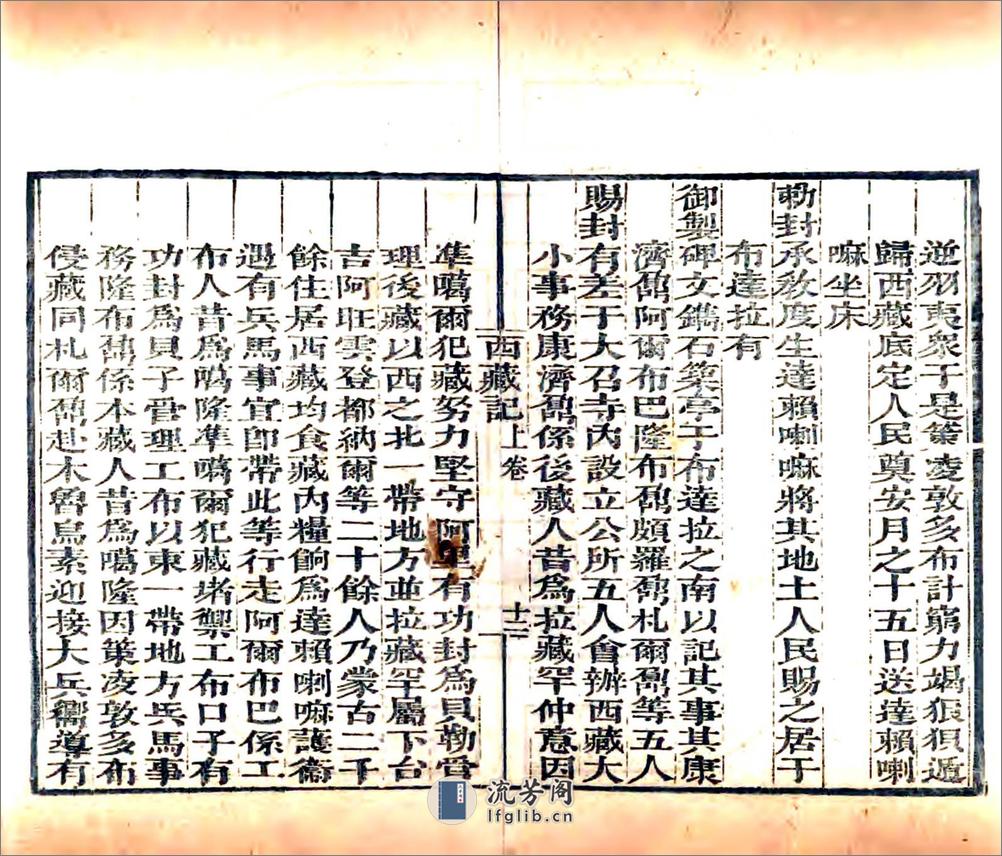 逆羽夷衆于是策凌敦多布計窮力竭狼狽遁
歸西藏底定人民奠安月之十五日送達賴喇
嘛坐床
勅封承敎度生達賴喇嘛將其地土人民賜之居于
布達拉有
御製碑文鐫石築亭于布達拉之南以記其事其康
濟鼐阿爾布巴隆布鼐頗羅鼐札爾鼐等五人
賜封有差于大召寺內設立公所五人會辦西藏大
小事務康濟鼐係後藏人昔爲拉藏罕仲意因
西藏記 上卷 十二
準噶爾犯藏努力堅守阿里有功封爲貝勒管
理後藏以西之北一帶地方並拉藏罕屬下台
吉阿旺雲登都納爾等二十餘人乃蒙古二千
餘住居西藏均食藏內糧餉爲達賴喇嘛護衞
遇有兵馬事宜卽帶此等行走阿爾布巴係工
布人昔爲噶隆準噶爾犯藏堵禦工布口子有
功封爲貝子管理工布以東一帶地方兵馬事
務隆布鼐係本藏人昔爲噶隆因策凌敦多布
侵藏同札爾鼐赴木魯烏素迎接大兵嚮導有
流芳阁
lfglib.cn